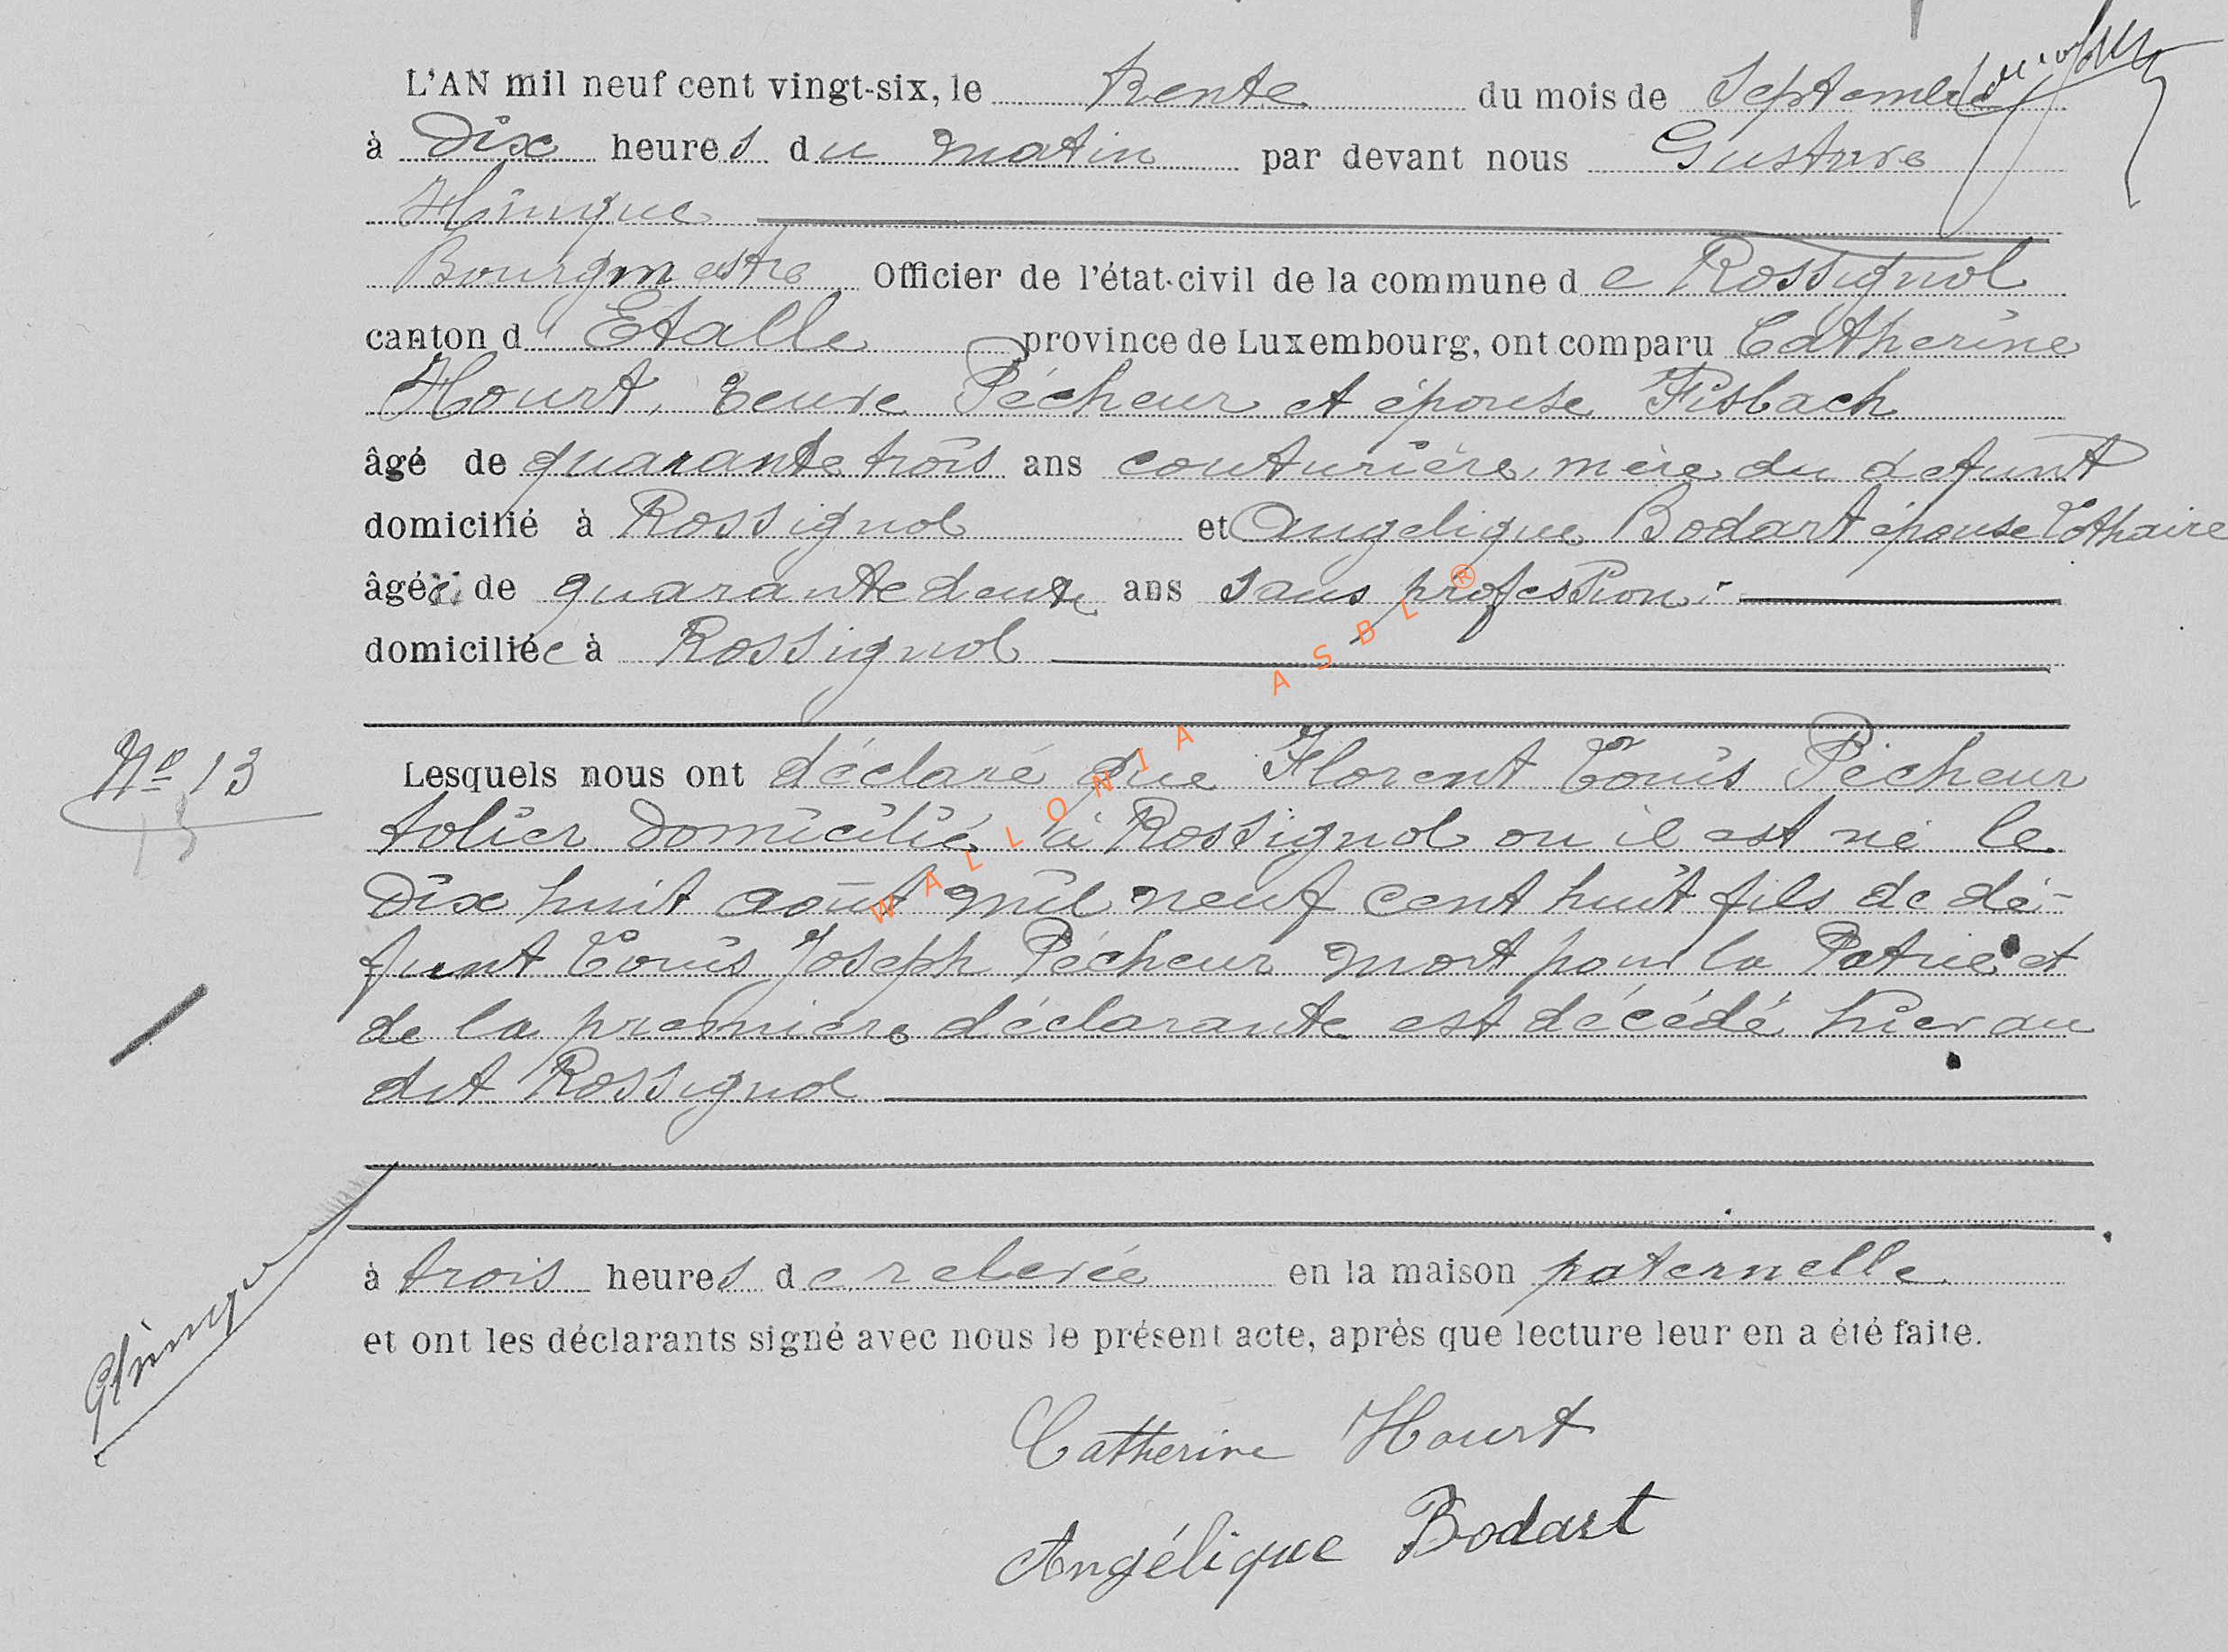 L'AN mil neuf cent vingt-six, le trente du mois de Septembre
à Dix heures du matin par devant nous Gustave
Hinque
Bourgmestre Officier de l'état-civil de la commune de Rossignol
canton d'Etalle province de Luxembourg, ont comparu Catherine
Hourt, veuve Pécheur et épouse Fisbach
âgé de quarante trois ans couturière, mère du défunt
domicilié à Rossignol et Angelique Bodart épouse Lothaire
âgée de quarante deux ans sans profession
domiciliée à Rossignol
Nº 13
Lesquels nous ont déclaré que Florent Louis Pécheur
tolier domicilié à Rossignol ou il est né le
dix huit août mil neuf cent huit fils de dé-
funt Louis Joseph Pécheur mort pour la Patrie et
de la première déclarante est décédé hier au
dit Rossignol
à trois heures de relevée en la maison paternelle
et ont les déclarants signé avec nous le présent acte, après que lecture leur en a été faite.
GHinque
Catherine Hourt
Angélique Bodart
WALLONIA ASBL ®